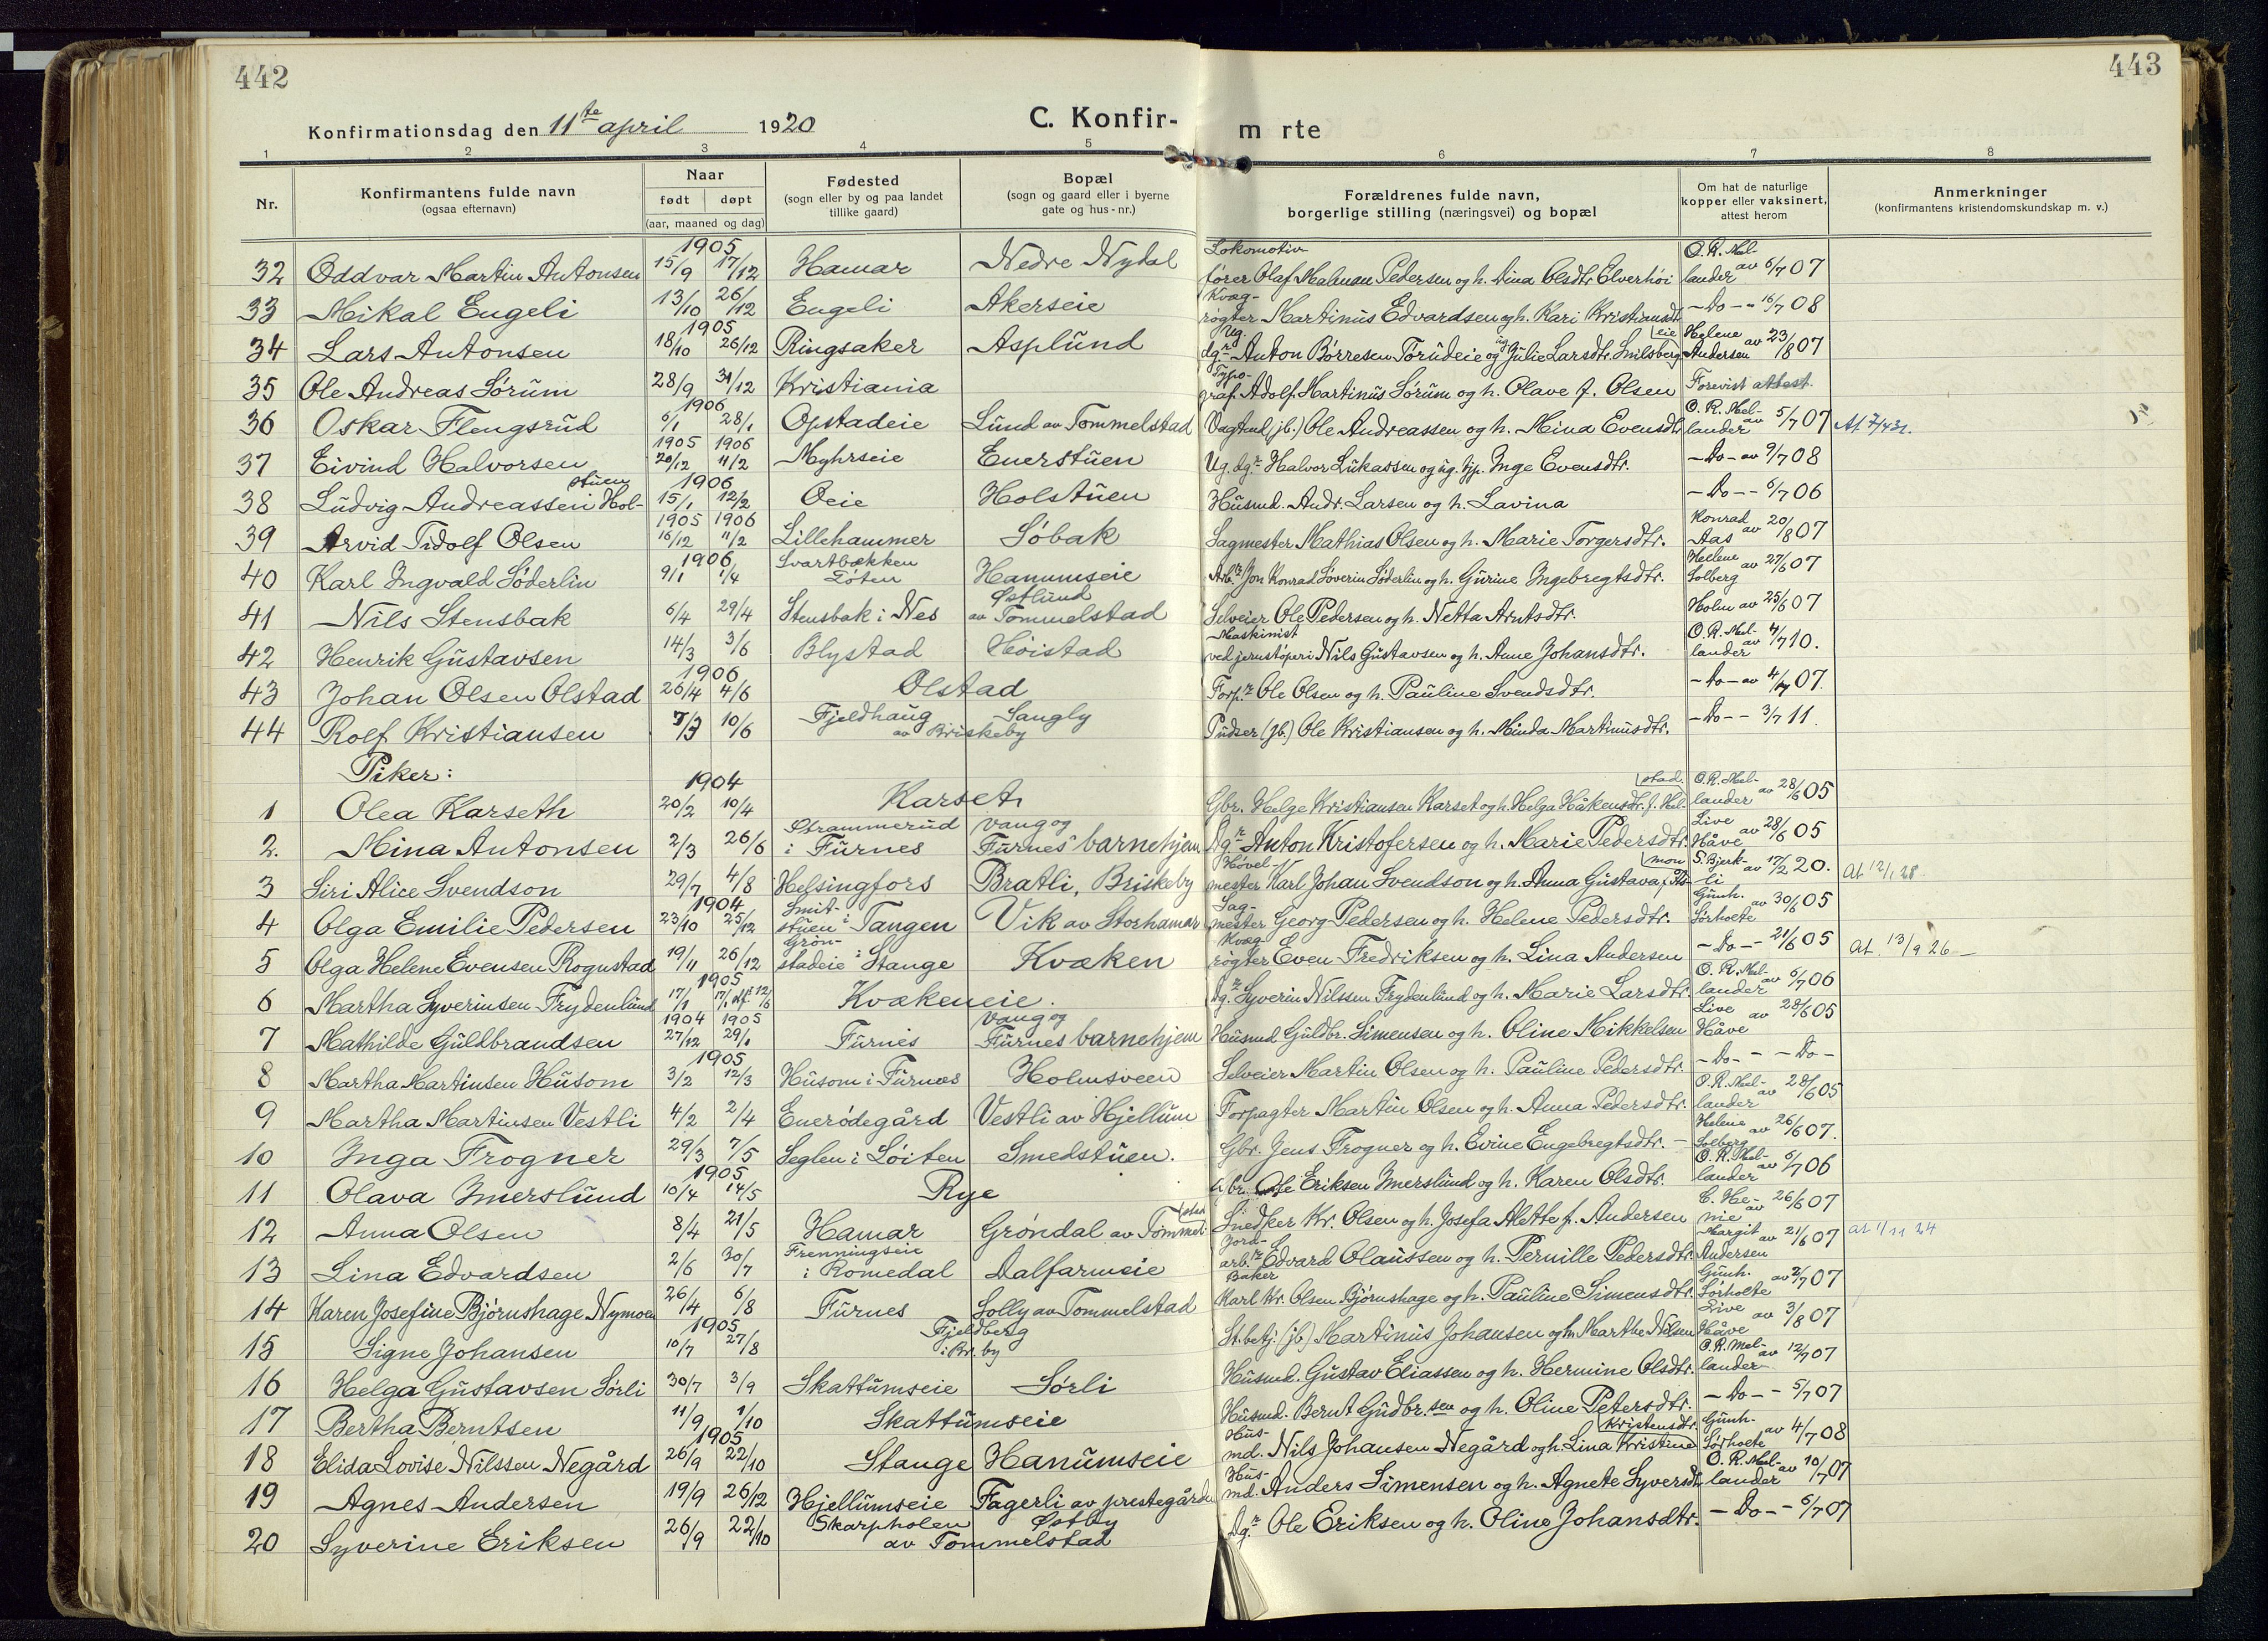 442
443
Konfirmationsdag den 11te april 1920
C. Konfir-
m rte
1 2 3 4 5 6 7 8
Nr.
Konfirmantens fulde navn
(ogsaa efternavn)
Naar
født døpt
(aar, maaned og dag)
Fødested
(sogn eller by og paa landet
tillike gaard)
Bopæl
(sogn og gaard eller i byerne
gate og hus-nr.)
Forældrenes fulde navn,
borgerlige stilling (næringsvei) og bopæl
Om hat de naturlige
kopper eller vaksinert,
attest herom
Anmerkninger
(konfirmantens kristendomskundskap m. v.)
1905 Lokomotiv- O. R. Mel-
32 Oddvar Martin Antonsen 15/9 17/12 Hamar Nedre Nydal fører Olaf Malman Pedersen og h. Dina Olsdtr. Elverhöi lander av 6/7 07
Kvæg-
33 Mikal Engeli 13/10 26/12 Engeli Akerseie røgter Martinus Edvardsen og h. Kari Kristiansdtr. -Do-- 16/7 08
1905 Ug. ug eie Helene
34 Lars Antonsen 18/10 26/12 Ringsaker Asplund dgr. Anton Börresen Torudeie og Julie Larsdtr. Smilsberg Andersen av 23/8 07
Typo-
35 Ole Andreas Sörum 28/9 31/12 Kristiania graf Adolf Martinus Sörum og h. Olave f. Olsen Forevist attest.
1906 O. R. Mel-
36 Oskar Flengsrud 6/1 28/1 Opstadeie Lund av Tommelstad Vagtmd. (jb.) Ole Andreassen og h. Mina Evensdtr. lander av 5/7 07 At 7/4 31.
1905 1906
37 Eivind Halvorsen 20/12 11/2 Myhrseie Enerstuen Ug. dgr. Halvor Lukassen og ug. tjp. Inge Evensdtr. -Do- av 9/7 08
stuen 1906
38 Ludvig Andreassen Hol- 15/1 12/2 Oeie Holstuen Husmd. Andr. Larsen og h. Lavina -Do-- 6/7 06
1905 1906 Konrad
39 Arvid Tidolf Olsen 16/12 11/2 Lillehammer Söbak Sagmester Mathias Olsen og h. Marie Torgersdtr. Aas av 20/8 07
1906 Svartbækken Helene
40 Karl Ingvald Söderlin 9/1 1/4 Töten Hanumseie Arb.r Jon Konrad Söverin Söderlin og h. Gurine Ingebregtsdtr. Solberg av 27/6 07
Østlund
41 Nils Stensbak 6/4 29/4 Stensbak i Nes av Tommelstad Selveier Ole Pedersen og h. Netta Arntsdtr. Holm av 25/6 07
Maskinist O. R. Mel-
42 Henrik Gustavsen 14/3 3/6 Blystad Höistad ved jernstöperi Nils Gustavsen og h. Anne Johansdtr. lander av 4/7 10.
1906
43 Johan Olsen Olstad 26/4 4/6 Olstad Forp.r Ole Olsen og h. Pauline Svendsdtr. -Do- av 4/7 07.
44 Rolf Kristiansen 7/3 10/6 Fjeldhaug Sangly Pudser (jb.) Ole Kristiansen og h. Minda Martinusdtr. -Do-- 3/7 11.
av Briskeby
Piker:
1904 stad. O. R. Mel-
1 Olea Karseth 20/2 10/4 Karset Gbr. Helge Kristiansen Karset og h. Helga Håkensdtr. f. Hel- lander av 28/6 05
Strammerud Vang og Live
2. Mina Antonsen 2/3 26/6 i Furnes Furnes barnehjem Dg.r Anton Kristofersen og h. Marie Pedersdtr. Håve av 28/6 05
Hövel- mon S. Bjerk-
3 Siri Alice Svendson 29/7 4/8 Helsingfors Bratli, Briskeby mester Karl Johan Svendson og h. Anna Gustava f. li av 17/2 20. At 12/1 28
1904 Smit- Sag- Gunh.
4 Olga Emilie Pedersen 23/10 25/12 stuen i Tangen Vik av Storhamar mester Georg Pedersen og h. Helene Pedersdtr. Sörholte av 30/6 05
Grön- Kvæg
5 Olga Helene Evensen Rognstad 19/11 26/12 stadeie i Stange Kvæken røgter Even Fredriksen og h. Lina Andersen -Do-- 21/6 05 at. 13/9 26-
1905 O. R. Mel-
6 Martha Syverinsen Frydenlund 17/1 17/1 st. 12/6 Kvækeneie. Dg.r Syverin Nilssen Frydenlund og h. Marie Larsdtr. lander av 6/7 06
1904 1905 Vang og Live
7 Mathilde Guldbrandsen 27/12 29/1 Furnes Furnes barnehjem Husmd Guldbr. Simensen og h. Oline Mikkelsen Håve av 28/6 05
1905
8 Martha Martinsen Husom 3/2 12/3 Husom i Furnæs Holmsveen Selveier Martin Olsen og h. Pauline Pedersdtr. -Do- - -Do-
O. R. Mel-
9 Martha Martinsen Vestli 4/2 2/4 Enerödegård Vestli av Hjellum Forpagter Martin Olsen og h. Anna Pedersdtr. lander av 28/6 05
Helene
10 Inga Frogner 29/3 7/5 Seglen i Löiten Smedstuen. Gbr. Jens Frogner og h. Evine Engebregtsdtr. - Solberg av 26/6 07.
1905 O. R. Mel-
11 Olava Imerslund 10/4 14/5 Rye Gbr. Ole Eriksen Imerslund og h. Karen Olsdtr. lander av 5/7 06
stad C. He-
12 Anna Olsen 8/4 21/5 Hamar Gröndal av Tommel- Snedker Kr. Olsen og h. Josefa Alette f. Andersen nie av 26/6 07
Frenningseie Jord- Margit
13 Lina Edvardsen 2/6 30/7 i Romedal Dalfarmeie arb.r Edvard Olaussen og h. Pernille Pedersdtr. Andersen av 21/6 07 at 1/11 24
Baker Gunh.
14 Karen Josefine Bjørnshage Nymoen 26/4 6/8 Furnes Solly av Tommelstad Karl Kr. Olsen Bjørnshage og h. Pauline Simensdtr. Sörholte av 2/7 07
1905 Fjeldberg Live
15 Signe Johansen 10/7 27/8 i Br. by St.betj. (jb) Martinus Johansen og h. Marthe Nilsen Håve av 3/8 07
O. R. Mel-
16 Helga Gustavsen Sörli 30/7 3/9 Skattumseie Sörli Husmd. Gustav Eliassen og h. Hermine Olsdtr. lander av 12/7 07
17 Bertha Berntsen 11/9 1/10 Skattumseie Husmd. Bernt Gudbr.sen og h. Oline Petersdtr. -Do-- 5/7 07
1905 Hus- Kristensdtr. Gunh.
18 Elida Lovise Nilssen Negård 26/9 22/10 Stange Hanumseie md. Nils Johansen Negård og h. Lina Kristine Sörholte av 4/7 08
Hus- O. R. Mel-
19 Agnes Andersen 19/9 26/12 Hjellumseie Fagerli av prestegården md. Anders Simensen og h. Agnete Syversdtr. lander av 10/7 07
Skarpholen Østby
20 Syverine Eriksen 26/9 22/10 av Tommelstad Dg.r Ole Eriksen og h. Oline Johansdtr. -Do-- 6/7 07